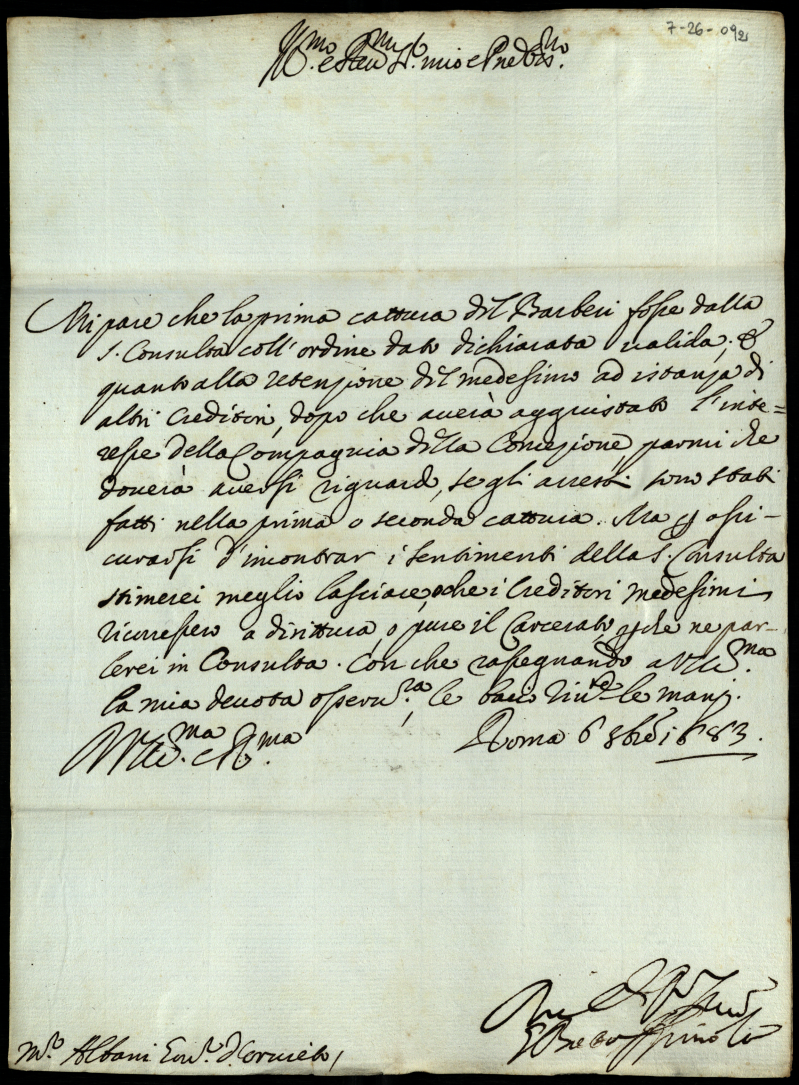 7-26-092
Ill.mo e Rev. Sr. mio e Pne Oss.mo
Mi pare che la prima cattura del Barberi fosse dalla
S. Consulta coll'ordine dato dichiarata valida; et
quanto alla retenzione del medesimo ad istanza di
altri Creditori, dopo che averà aggiustato l'inte=
resse della Compagnia della Concezione, parmi che
doverà aversi riguardo, se gli arresti sono stati
fatti nella prima o seconda cattura. Ma p assi-
curarsi d'incontrar i sentimenti della S. Consulta
stimerei meglio lasciare che i Creditori medesimi
ricorressero a dirittura, o pure il Carcerato, pche ne par-
lerei in Consulta. Con che rassegnando a V.S. Ill.ma
la mia devota osserv.za, le bacio riv.te le mani.
V.S. Ill.ma e R.ma Roma 6 8bre 1683.
Spinola
M.r Albani Gov.r d. Corneto